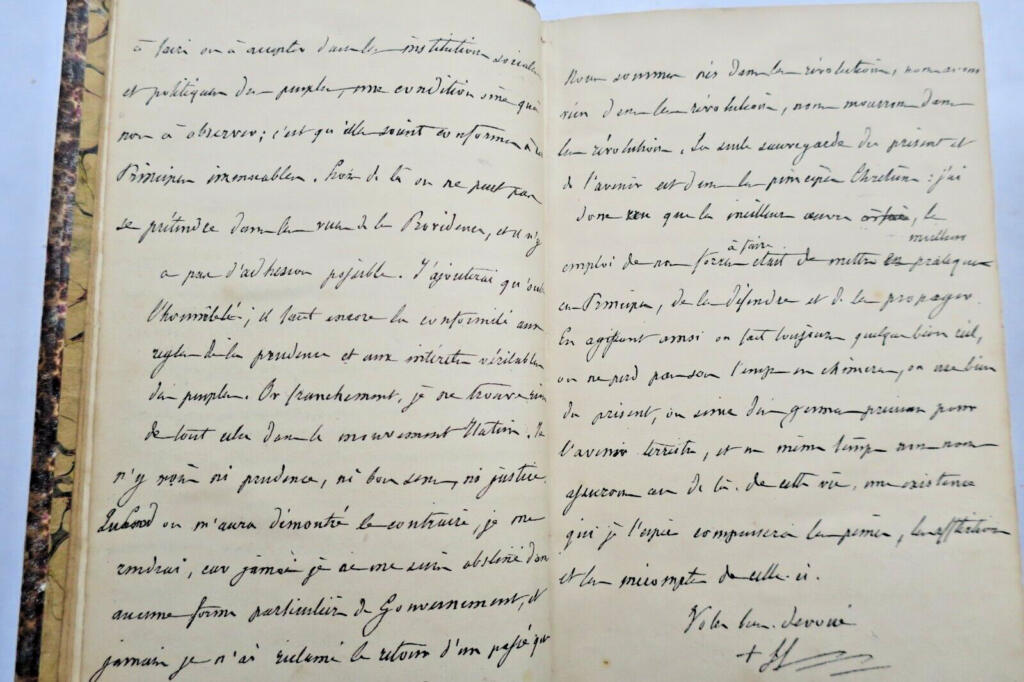 à faire ou à accepter dans les institutions sociales
et politiques du peuple, une condition sine qua
non à observer; c'est qu'elles soient conformes à des
Principes immuables. Hors de là on ne peut pas
se prétendre dans les vues de la Providence, et il n'y
a pas d'adhésion possible. J'ajouterai qu'outre
l'honnêteté, il faut encore la conformité aux
règles de la prudence et aux intérêts véritables
du peuple. Or franchement, je ne trouve rien
de tout cela dans le mouvement Italien. Je
n'y vois ni prudence, ni bon sens, ni justice.
Quand on m'aura démontré le contraire, je me
rendrai, car jamais je ne me suis obstiné dans
aucune forme particulière de Gouvernement, et
jamais je n'ai réclamé le retour d'un passé qui
Nous sommes nés dans la révolution, nous avons
vécu dans la révolution, nous mourrons dans
la révolution. La seule sauvegarde du présent et
de l'avenir est dans les principes Chrétiens: j'ai
donc vu que la meilleure œuvre, le
meilleur
à faire
emploi de nos forces était de mettre en pratique
ces Principes, de les défendre et de les propager.
En agissant ainsi on fait toujours quelque bien réel,
on ne perd pas son temps en chimères, on use bien
du présent, on sème des germes pour
l'avenir terrestre, et en même temps nous nous
assurons au delà de cette vie, une existence
qui je l'espère compensera les peines, les afflictions
et les mécomptes de celle-ci.
Votre bien dévoué